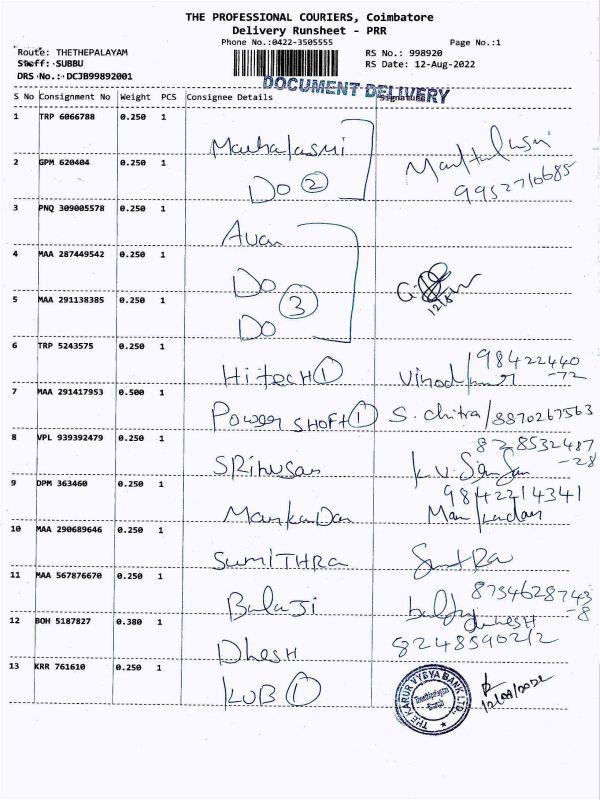 THE PROFESSIONAL COURIERS, Coimbatore
Delivery Runsheet - PRR
Phone No.:0422-3505555
Page No.:1
Route: THETHEPALAYAM
RS No.: 998920
Staff: SUBBU
RS Date: 12-Aug-2022
DRS No.: DCJB99892001
DOCUMENT DELIVERY
S No Consignment No Weight PCS Consignee Details Signature
1 TRP 6066788 0.250 1
Mahalasmi
2 GPM 620404 0.250 1
9952710685
Do 2
3 PNQ 309005578 0.250 1
Avan
4 MAA 287449542 0.250 1
Do
3
12/8
5 MAA 291138385 0.250 1
Do
6 TRP 5243575 0.250 1
Hitech 1 Vinod Kumar 98422440
-72
7 MAA 291417953 0.500 1
Power SHOFT 1 S. chitra/8870267563
8 VPL 939392479 0.250 1
828532487
-28
SRinusan K.V.
9 DPM 363460 0.250 1
9842214341
Mankandan
10 MAA 290689646 0.250 1
SUMITHRA
11 MAA 567876670 0.250 1
8754628743
-8
BalaJi
12 BOH 5187827 0.380 1
Dhesh
13 KRR 761610 0.250 1
KVB 1
THE KARUR VYSYA BANK LTD.
Thethipalayam
Branch
12/08/2022